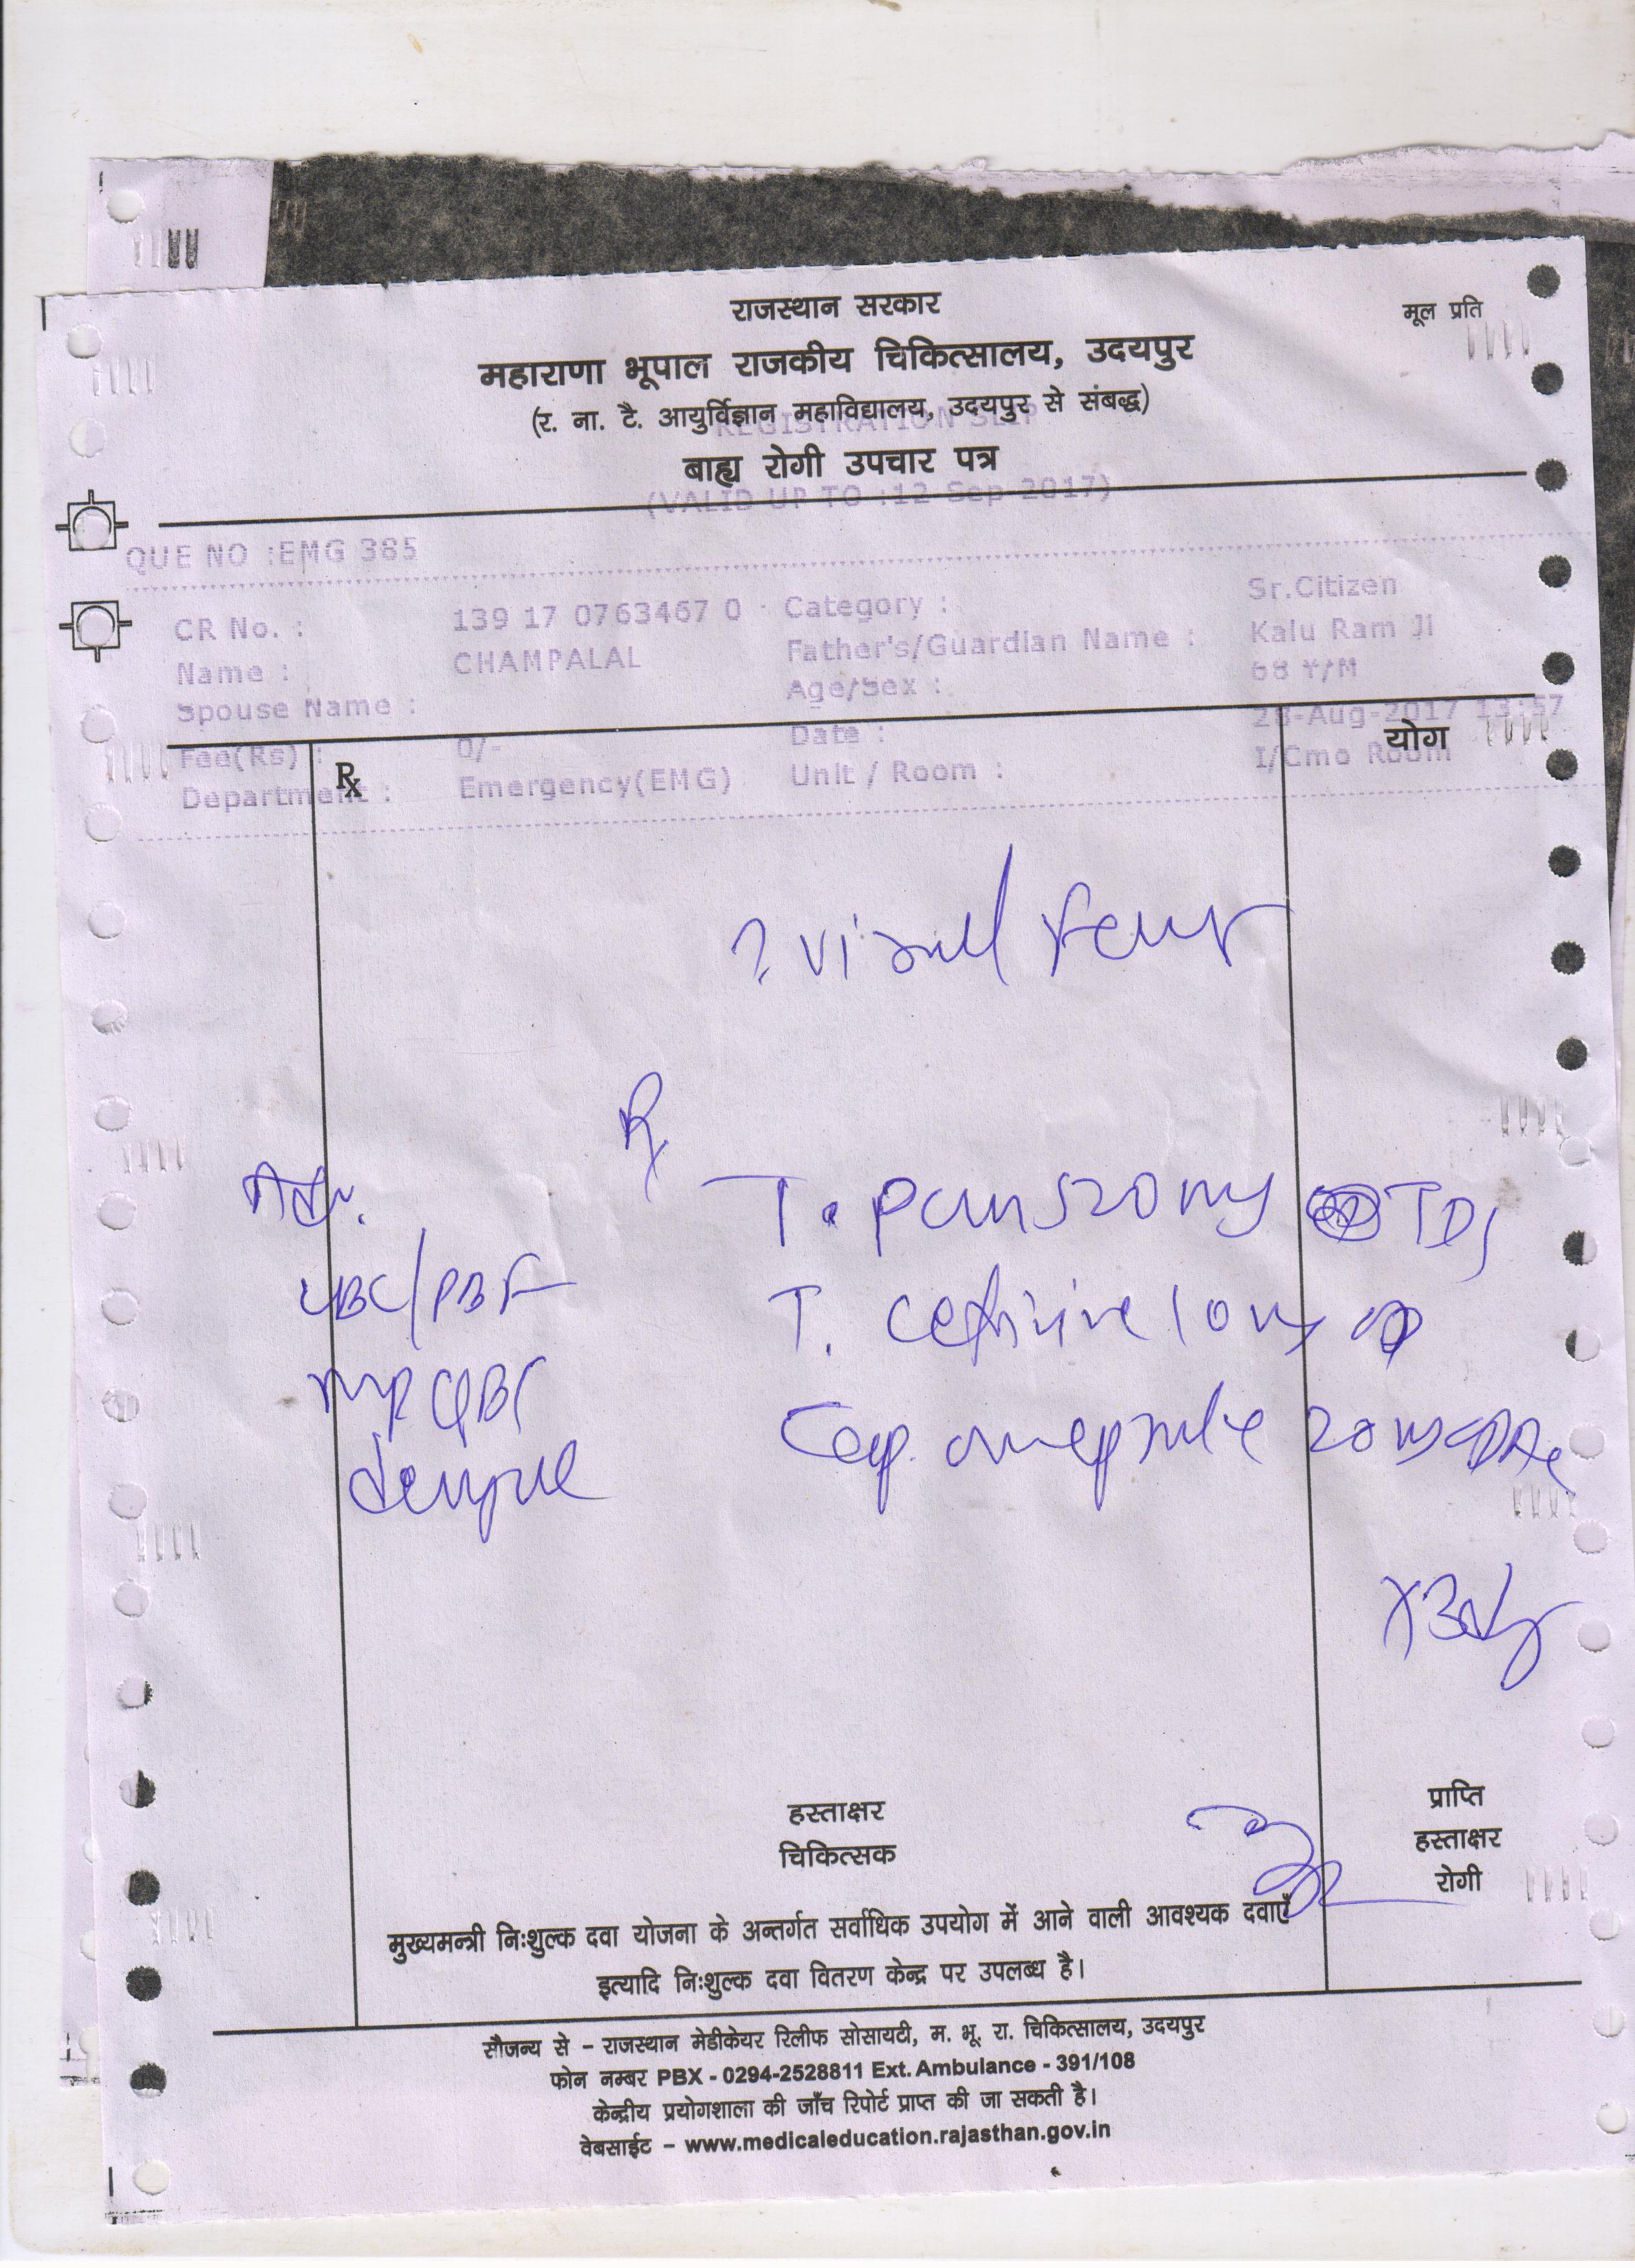 राजस्थान सरकार
मूल प्रति
महाराणा भूपाल राजकीय चिकित्सालय, उदयपुर
(र. ना. टै. आयुर्विज्ञान महाविद्यालय, उदयपुर से संबद्ध)
REGISTRATION SLIP
बाह्य रोगी उपचार पत्र
(VALID UP TO :12 Sep 2017)
QUE NO :EMG 385
CR No. : 139 17 0763467 0 Category : Sr.Citizen
Name : CHAMPALAL Father's/Guardian Name : Kalu Ram Ji
Spouse Name : Age/Sex : 68 Y/M
Fee(Rs) : 0/- Date : 28-Aug-2017 13:57
Department : Emergency(EMG) Unit / Room : I/Cmo Room
Rx
योग
? viral fever
Rx
Adv.
T. 520 mg TDS
CBC/PBF
T. cetirizine 10 mg OD
MP QBC
Cap. omeprazole 20 mg
dengue
x 3 days
हस्ताक्षर
चिकित्सक
प्राप्ति
हस्ताक्षर
रोगी
मुख्यमन्त्री निःशुल्क दवा योजना के अन्तर्गत सर्वाधिक उपयोग में आने वाली आवश्यक दवाएँ
इत्यादि निःशुल्क दवा वितरण केन्द्र पर उपलब्ध है।
सौजन्य से – राजस्थान मेडीकेयर रिलीफ सोसायटी, म. भू. रा. चिकित्सालय, उदयपुर
फोन नम्बर PBX - 0294-2528811 Ext. Ambulance - 391/108
केन्द्रीय प्रयोगशाला की जाँच रिपोर्ट प्राप्त की जा सकती है।
वेबसाईट – www.medicaleducation.rajasthan.gov.in